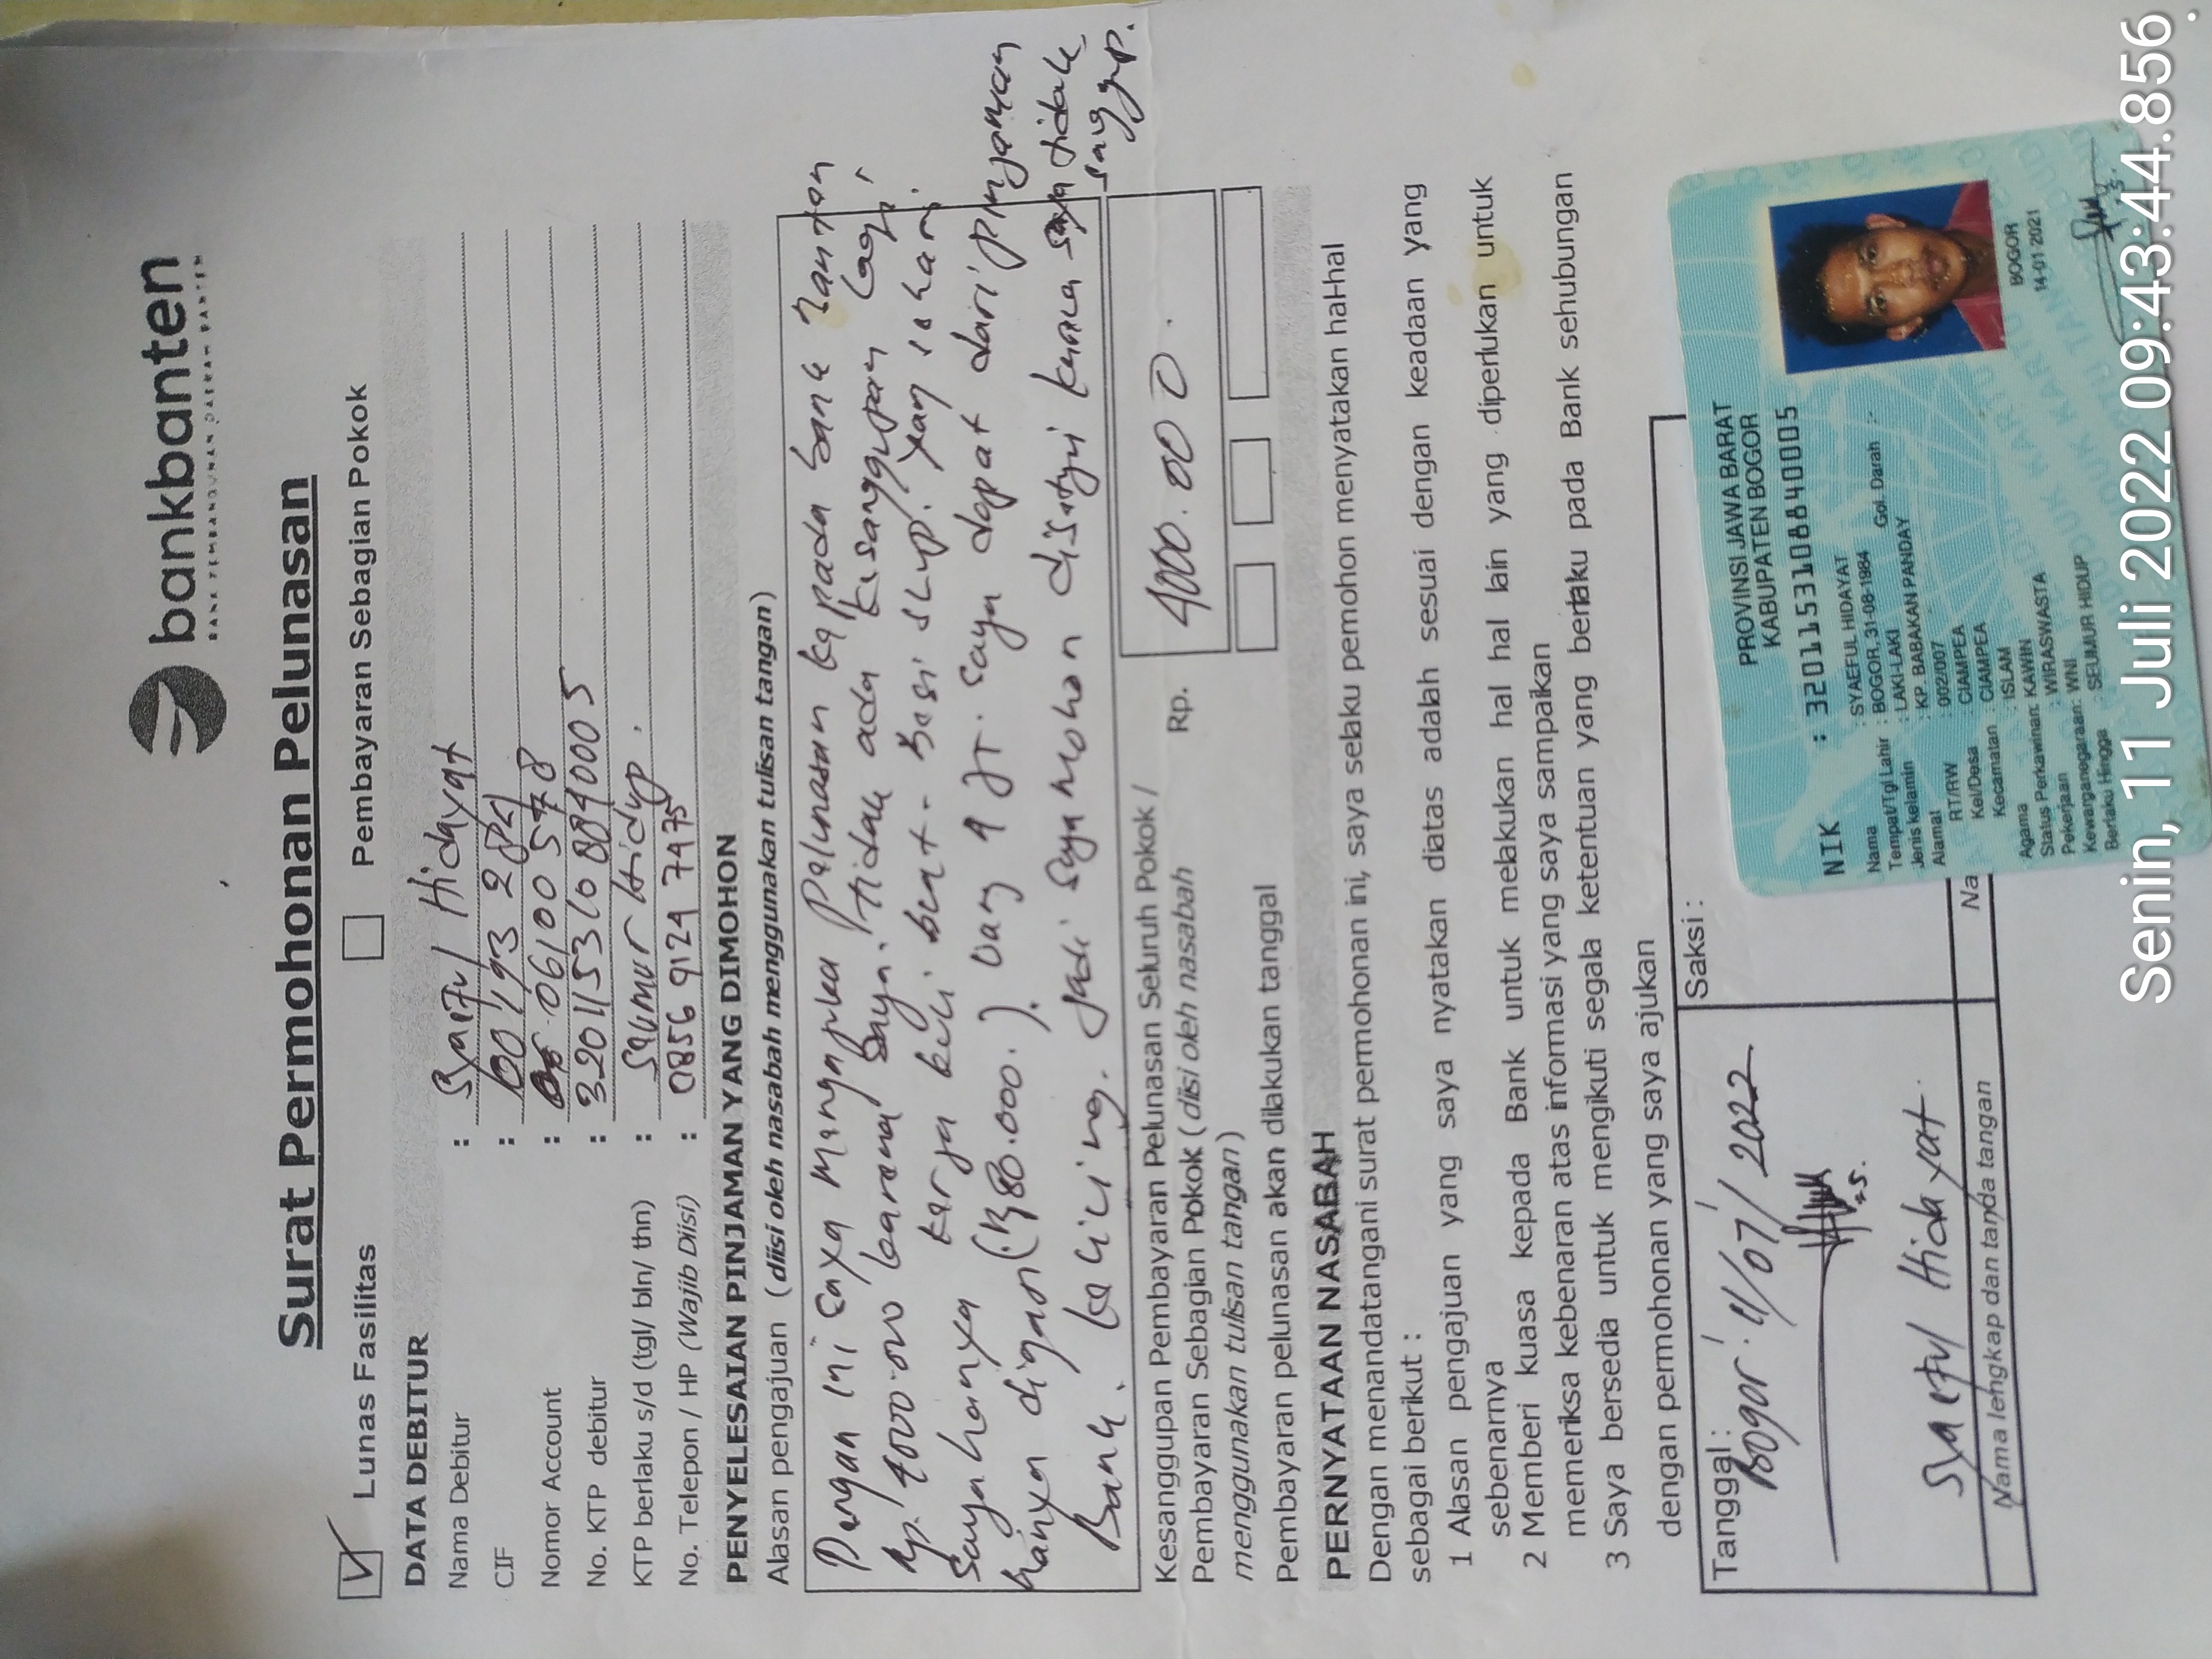 bankbanten
BANK PEMBANGUNAN DAERAH BANTEN
Surat Permohonan Pelunasan
Lunas Fasilitas
Pembayaran Sebagian Pokok
DATA DEBITUR
Nama Debitur : Syaeful Hidayat
CIF : 00193284
Nomor Account : 06100578
No. KTP debitur : 3201153108840005
KTP berlaku s/d (tgl/ bln/ thn) : Seumur Hidup.
No. Telepon / HP (Wajib Diisi) : 0856 9124 7475
PENYELESAIAN PINJAMAN YANG DIMOHON
Alasan pengajuan (diisi oleh nasabah menggunakan tulisan tangan)
Dengan ini saya mengajukan Pelunasan kepada bank banten
Rp. 4000.000 karena saya tidak ada kesanggupan lagi,
saya hanya kerja kuli. besi yang sehari
hanya digaji (Rp 80.000.). Uang 4 Jt. saya dapat dari pinjaman
Bank keliling. Jadi saya mohon disetujui karena saya tidak
sanggup.
Kesanggupan Pembayaran Pelunasan Seluruh Pokok /
Pembayaran Sebagian Pokok (diisi oleh nasabah
menggunakan tulisan tangan)
Rp. 4000.000.
Pembayaran pelunasan akan dilakukan tanggal
PERNYATAAN NASABAH
Dengan menandatangani surat permohonan ini, saya selaku pemohon menyatakan hal-hal
sebagai berikut :
1 Alasan pengajuan yang saya nyatakan diatas adalah sesuai dengan keadaan yang
sebenarnya
2 Memberi kuasa kepada Bank untuk melakukan hal hal lain yang diperlukan untuk
memeriksa kebenaran atas informasi yang saya sampaikan
3 Saya bersedia untuk mengikuti segala ketentuan yang berlaku pada Bank sehubungan
dengan permohonan yang saya ajukan
Tanggal :
Bogor 11/07/2022
Syaeful Hidayat.
Nama lengkap dan tanda tangan
Saksi :
Na
PROVINSI JAWA BARAT
KABUPATEN BOGOR
NIK : 3201153108840005
Nama : SYAEFUL HIDAYAT
Tempat/Tgl Lahir : BOGOR, 31-08-1984
Jenis kelamin : LAKI-LAKI Gol. Darah : -
Alamat : KP. BABAKAN PANDAY
RT/RW : 002/007
Kel/Desa : CIAMPEA
Kecamatan : CIAMPEA
Agama : ISLAM
Status Perkawinan: KAWIN
Pekerjaan : WIRASWASTA
Kewarganegaraan: WNI
Berlaku Hingga : SEUMUR HIDUP
BOGOR
14-01-2021
Senin, 11 Juli 2022 09:43:44.856